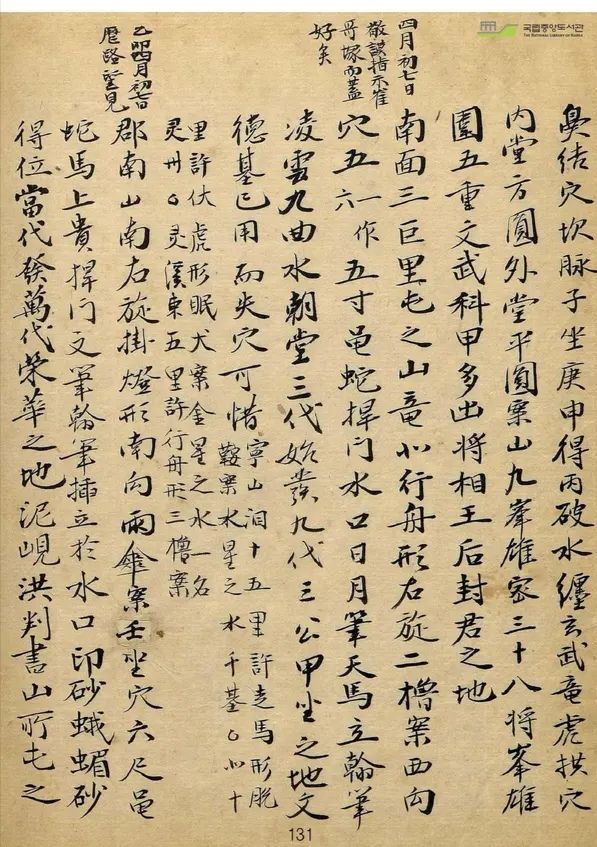 국립중앙도서관
THE NATIONAL LIBRARY OF KOREA
四月初七日
敬謨指示崔
哥塚而蓋
好矣
乙卯四月初七日
歷路望見
臭結穴坎脉子坐庚申得丙破水纏玄武竜虎拱穴
内堂方圓外堂平圓案山九峯雄密三十八将峯雄
園五重文武科甲多出将相王后封君之地
南面三巨里屯之山竜小行舟形右旋二櫓案西向
穴五六一作五寸黾蛇捍门水口日月筆天馬立翰筆
凌雲九曲水朝堂三代始發九代三公甲坐之地文
德基已用而失穴可惜寧山泪十五里許走馬形脱
鞍案水星之水千基○小十
里許伏虎形眠犬案金星之水一名
灵卅○灵溪東五里許行舟形三櫓案
郡南山南右旋掛燈形南向雨傘案壬坐穴六尺黾
蛇馬上貴捍门文筆翰筆揷立於水口印砂蛾蝞砂
得位當代發萬代荣華之地泥峴洪判書山所屯之
131